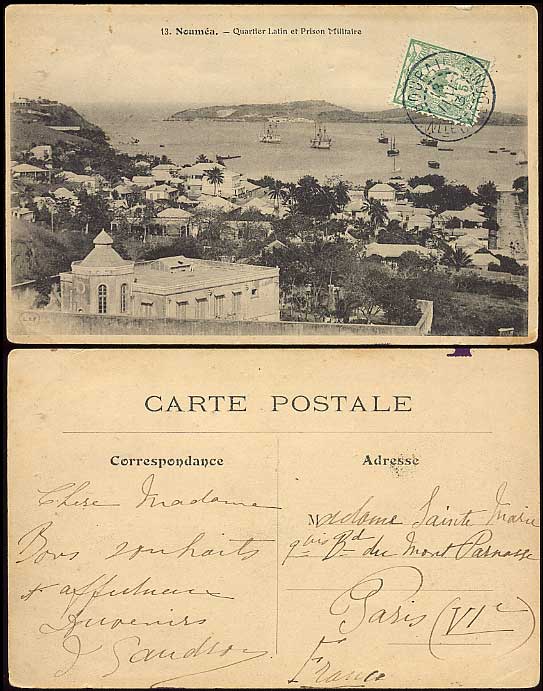 13. Nouméa. — Quartier Latin et Prison Militaire
CARTE POSTALE
Correspondance
Adresse
Chere Madame
Bons souhaits
& affectueux
Souvenirs
Madame Sainte Marie
9bis Bd du Mont Parnasse
Paris (VIe
France